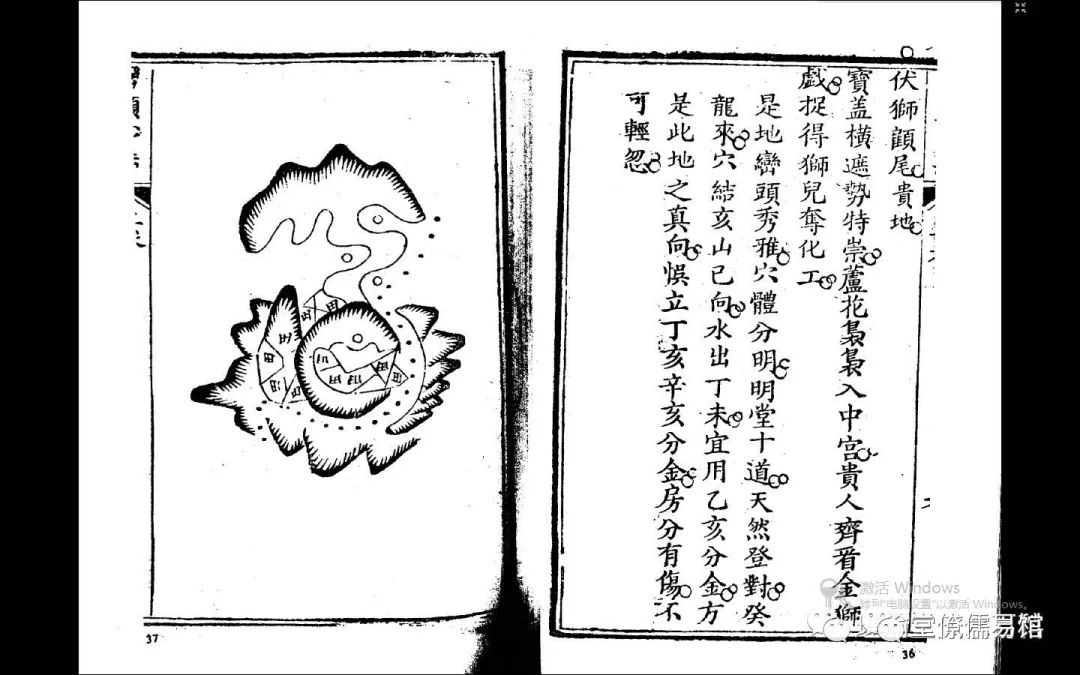 伏獅顧尾貴地
寶盖橫遮勢特崇蘆花裊裊入中宮貴人齊看金獅
戲捉得獅兒奪化工
是地巒頭秀雅穴體分明明堂十道天然登對癸
龍來穴結亥山已向水出丁未宜用乙亥分金方
是此地之真向悞立丁亥辛亥分金房分有傷不
可輕忽
36
田
37
激活 Windows
转到"电脑设置"以激活 Windows。
堂僚儒易馆